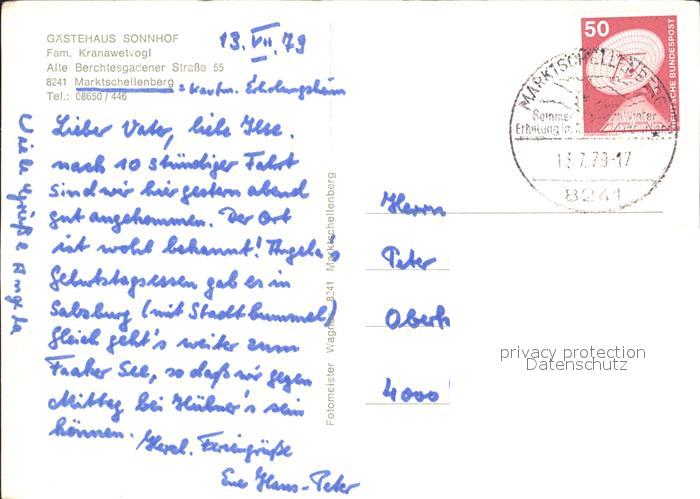 GÄSTEHAUS SONNHOF
Fam. Kranawetvogl
Alte Berchtesgadener Straße 55
8241 Marktschellenberg
Tel.: 08650 / 446
13. VII. 79
= kaufm. Erholungsheim
Lieber Vater, liebe Ilse.
nach 10 stündiger Fahrt
sind wir hier gestern abend
gut angekommen. Der Ort
ist wohl bekannt! Angela's
Geburtstagsessen gab es in
Salzburg (mit Stadtbummel)
Gleich geht's weiter zum
Faaker See, so daß wir gegen
Mittag bei Hübner's sein
können.
Herzl. Feriengrüße
Eure Hans-Peter
Viele Grüße Angela
Fotomeister Wagner 8241 Marktschellenberg
50
DEUTSCHE BUNDESPOST
MARKTSCHELLENBERG
Sommer Winter
Erholung im
13.7.79-17
8241
Herrn
Peter
Oberh
4000
privacy protection
Datenschutz